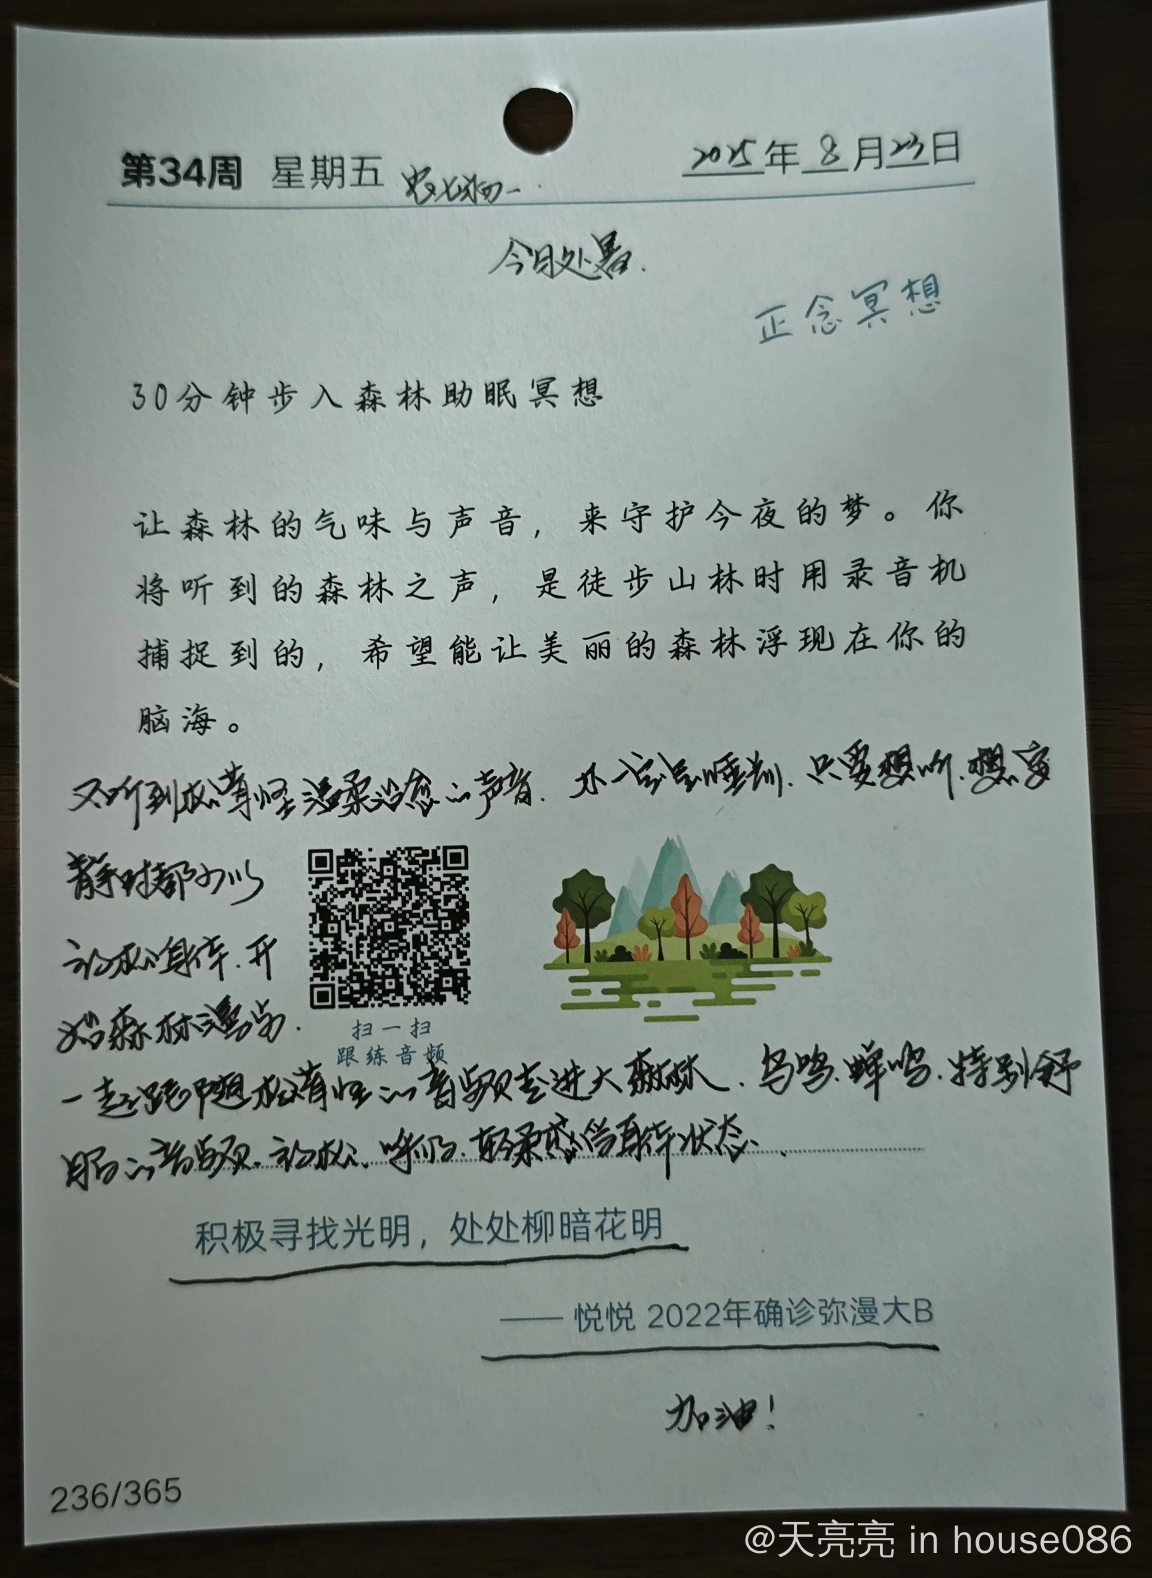 第34周 星期五 农七初一.
2025年8月23日
今日处暑.
正念冥想
30分钟步入森林助眠冥想
让森林的气味与声音，来守护今夜的梦。你
将听到的森林之声，是徒步山林时用录音机
捕捉到的，希望能让美丽的森林浮现在你的
脑海。
又听到松茸怪温柔治愈的声音. 不一定是睡觉. 只要想听. 想安
静时都可以
扫一扫
跟练音频
放松身体. 开
始森林漫步.
一起跟随松茸怪的音频走进大森林. 鸟鸣. 蝉鸣. 特别舒
服的音频. 放松. 呼吸. 轻柔感觉身体状态.
积极寻找光明，处处柳暗花明
—— 悦悦 2022年确诊弥漫大B
加油！
236/365
@天亮亮 in house086